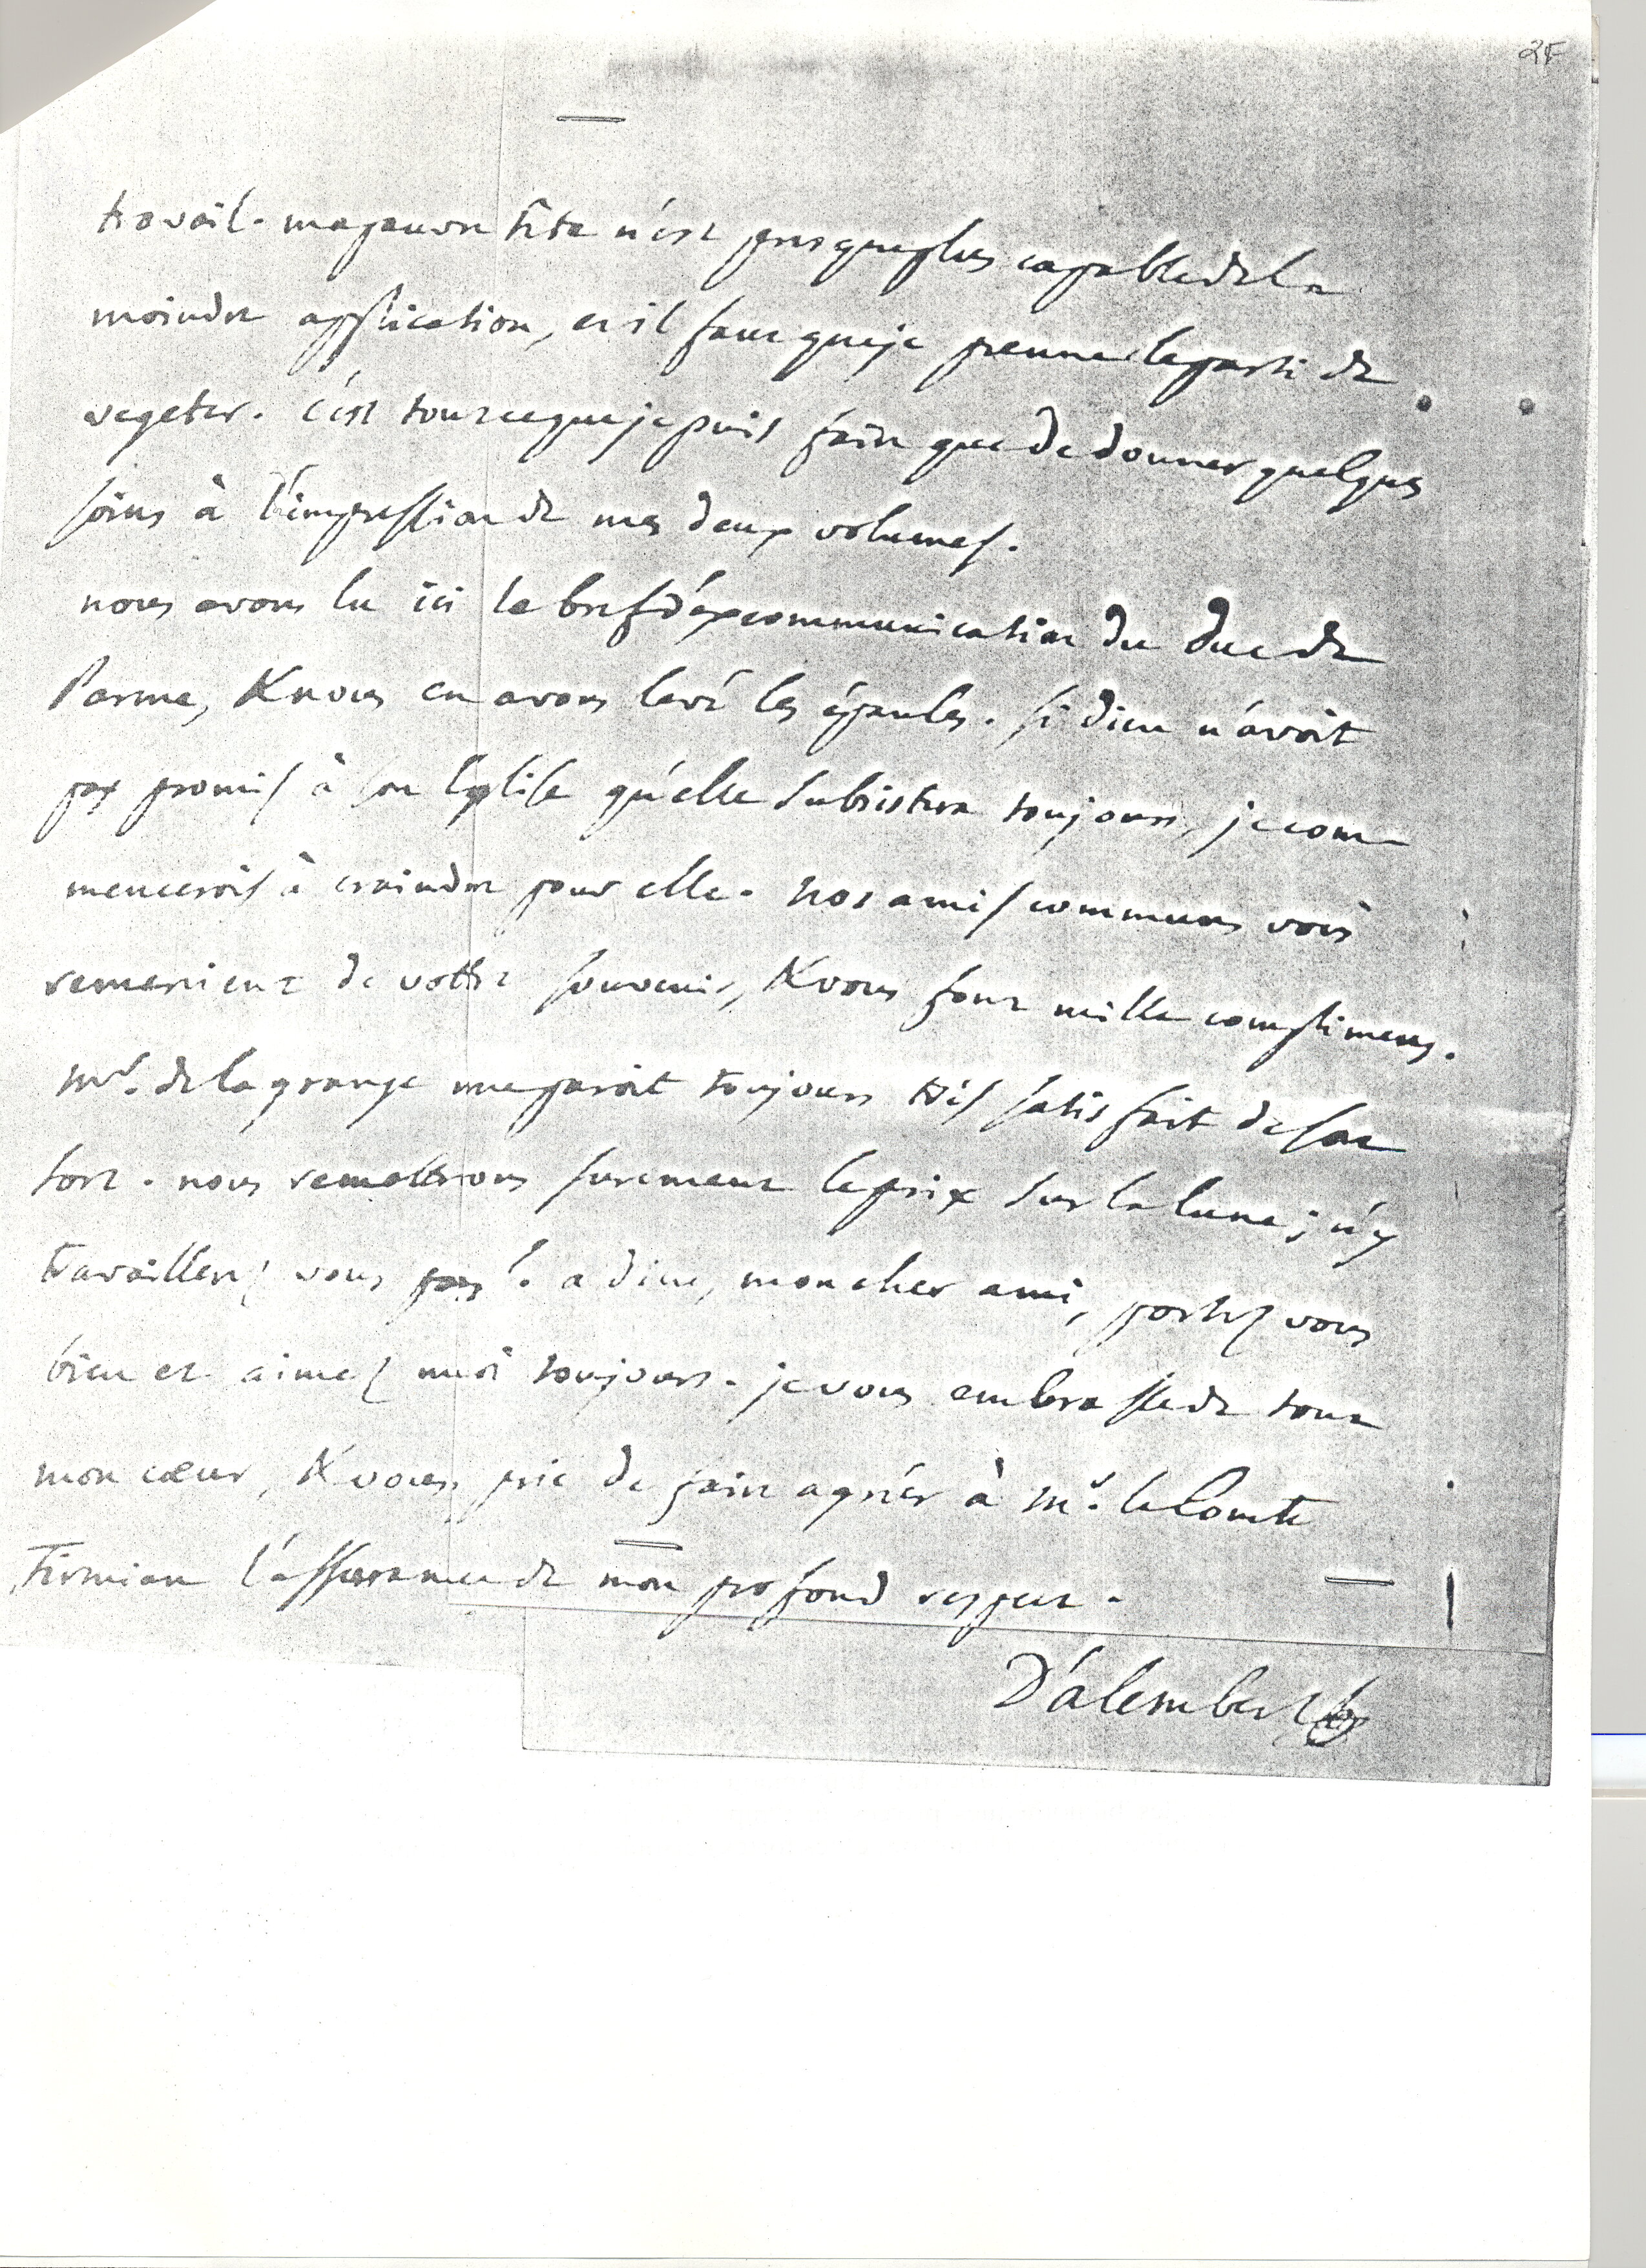 2F
travail. ma pauvre tête n'est presque plus capable de la
moindre application, et il faut que je prenne le parti de
vegeter. c'est tout ce que je puis faire que de donner quelques
soins à l'impression de mes deux volumes.
nous avons lu ici le bref d'excommunication du Duc de
Parme, & nous en avons levé les épaules. si dieu n'avoit
pas promis à son Eglise qu'elle subsistera toujours, je com
mencerois à craindre pour elle. nos amis communs vous
remercient de votre souvenir, & vous font mille complimens.
Mr. de la grange me paroit toujours très satisfait de son
sort. nous remettrons surement le prix sur la lune; n'y
travaillez vous pas? adieu, mon cher ami, portez vous
bien et aimez moi toujours. je vous embrasse de tout
mon cœur, & vous prie de faire agréer à Mr. le Comte
Firmian l'assurance de mon profond respect.
D'alembert